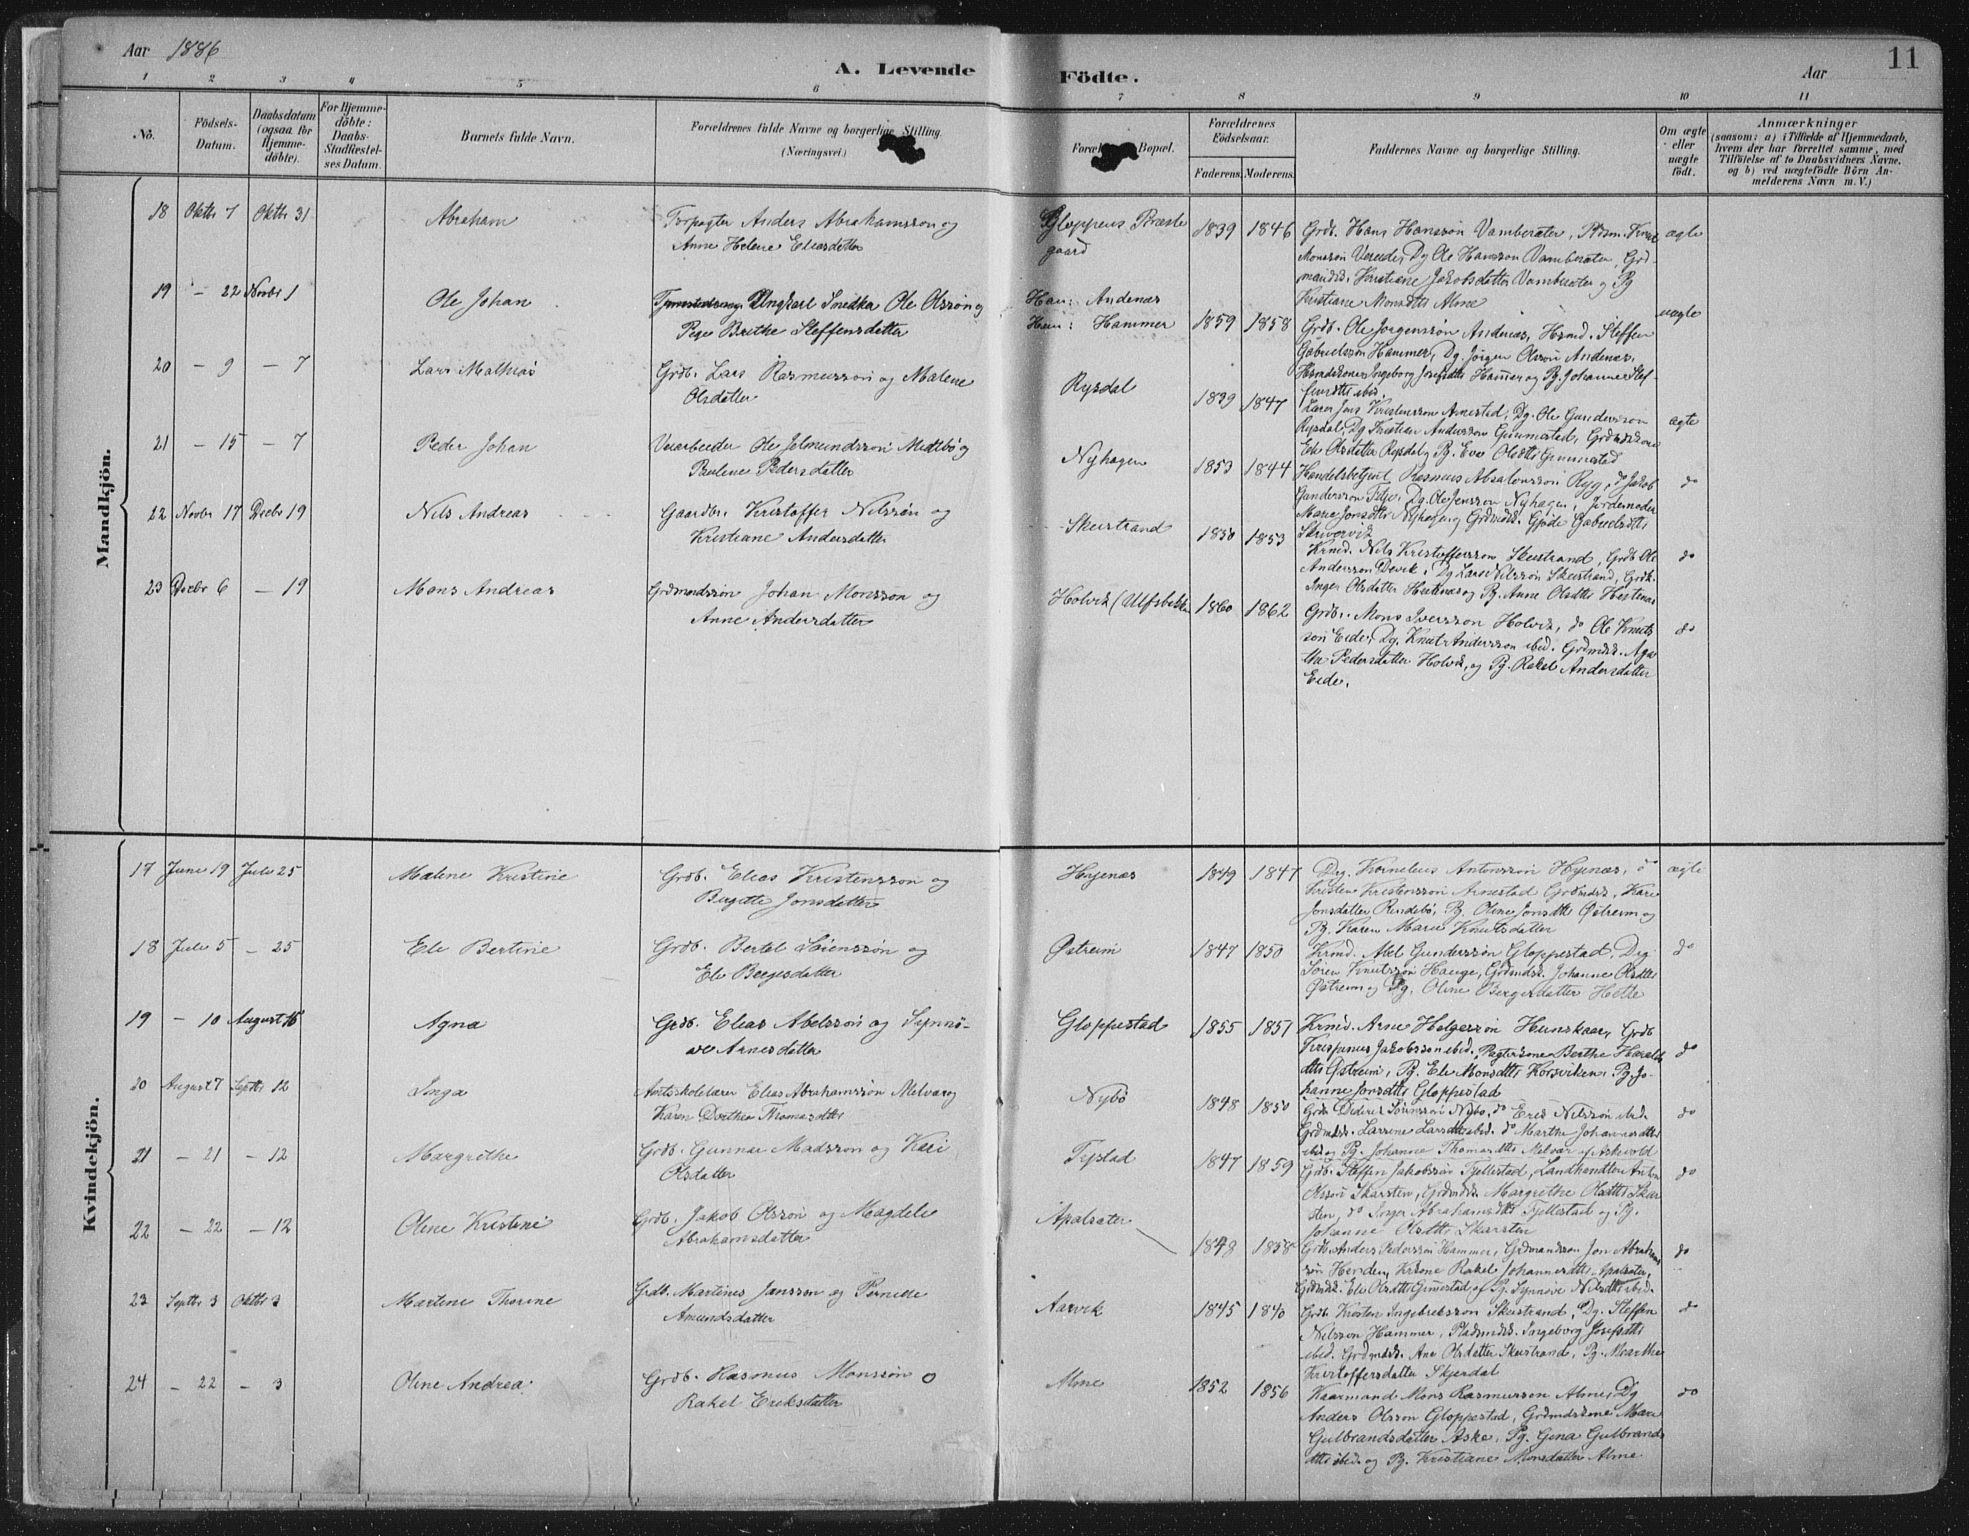 Aar 1886
A. Levende
Födte.
Aar
11
1 2 3 4 5 6 7 8 9 10 11
No.
Födsels-
Datum.
Daabsdatum
(ogsaa for
Hjemme-
döbte).
For Hjemme-
döbte:
Daabs-
Stadfæstel-
ses Datum.
Barnets fulde Navn.
Forældrenes fulde Navne og borgerlige Stilling.
(Næringsvei.)
Bopæl.
Forældrenes
Födselsaar.
Faderens. Moderens.
Faddernes Navne og borgerlige Stilling.
Om ægte
eller
uægte
födt.
Anmærkninger
(saasom: a) i Tilfælde af Hjemmedaab,
hvem der har forrettet samme, med
Tilföielse af to Daabsvidners Navne,
og b) ved uægtefödte Börn An-
melderens Navn m. V.)
Mandkjön.
18 Oktbr 7 Oktbr 31 Abraham
Anders Abrahamsson og
Anne Helene Eliasdatter
Gloppens Præste
gaard
1839 1846
Grdb. Hans Hansson Vamberæter,
Monsson Dg Ole Hansson Vamberæter,
Kristiane Jakobsdatter Vamberæter og Pg
Kristiane Monsdtr Alme
ægte
19 – 22 Novbr 1 Ole Johan
Ungkarl Ole Olsson og
Pige Berthe Steffensdatter
Han: Andenæs
Hun: Hammer
1859 1858
Grdb. Ole Jørgensson Andenæs, Steffen
Gabrielsson Hammer, Dg. Jörgen Olsson Andenæs,
Ingeborg Josefsdtr Hammer og Pg. Johanne Stef-
fensdtr ibid.
uægte
20 – 9 – 7 Lars Mathias
Grdb. Lars Rasmusson og Malene
Olsdatter
Rysdal
1839 1847
Lærer Jens Kristensson Arnestad, Dg. Ole Gundersson
Rysdal, Dg Kristian Andersson Gimmestad,
Eli Olsdatter Rysdal og Pg. Eva Olsdtr Gimmestad
ægte
21 – 15 – 7 Peder Johan
Ole Jetmundsson Midtbö og
Pauline Pedersdatter
Nyhagen
1853 1844
Handelsbetjent Rasmus Absalonsson Ryg, do Jakob
Gundersson Dg. Ole Jensson Nyhagen, Jordemoder
Marie Jonsdtr Nyhagen og Gabrielsdtr
do
22 Novbr 17 Decbr 19 Nils Andreas
Gaardbr. Kristoffer Nilssön og
Kristiane Andersdatter
Skeistrand
1850 1853
Krmd. Nils Kristoffersson Skeistrand, Grdb Ole
Andersson Devik, Dg Lars Nilsson Skeistrand,
Inger Olsdatter Hestenæs og Pg. Anne Olsdtr Hestenæs
do
23 Decbr 6 – 19 Mons Andreas
Grdmandssön Johan Monsson og
Anne Andersdatter
Holvik
1860 1862
Grdb. Mons Iversson Holvik, do Ole Knuts
son Eide, Dg. Knut Andersson ibid. Grdmdsk. Aga-
tha Pedersdatter Holvik, og Pg. Rakel Andersdatter
Eide.
do
Kvindekjön.
17 Juni 19 Juli 25 Malene Kristine
Grdb. Elias Kristensson og
Birgitte Jonsdatter
Hyenæs
1849 1847
Drg. Kornelius Antonsson Hyenæs, do
Kristen Kristensson Arnestad Grdmdsk. Kari
Jonsdatter Rindebö, Pg. Oline Jonsdtr Østreim og
Pg. Karen Marie Knutsdatter
ægte
18 Juli 5 – 25 Eli Bertine
Grdb. Bertel Sörenssön og
Eli Bergesdatter
Østreim
1847 1850
Krmd. Abel Gunderssön Gloppestad, Drg
Sören Knutssön Hauge, Grdmdsk. Johanne Olsdtr
Østreim og Pg. Oline Bergesdatter Hetle
do
19 – 10 August 15 Agna
Grdb. Elias Abelssön og Synnö-
ve Arnesdatter
Gloppestad
1855 1857
Krmd. Arne Helgessön Hunskaar, Grdb
Krispinus Jakobsson ibid. Berthe Haralds
dtr Østreim, Pg. Eli Monsdtr Korsviken, Pg. Jo-
hanne Jonsdtr Gloppestad
do
20 August 7 Septbr 12 Inga
Amtskolelærer Elias Abrahamssön Melvær og
Karen Dorthea Thomasdtr
Nybö
1848 1850
Grdb. Diderik Sörenssön Nybö, do Erik Nilssön ibid.
Grdmdsk. Larsine Larsdtr ibid. do Marthe Johannesdtr
ibid og Pg. Johanne Thomasdtr Melvær af Askvold
do
21 – 21 – 12 Margrethe
Grdb. Gunnar Madsson og Kari
Olsdatter
Tystad
1847 1859
Grdb. Steffen Jakobssön Fjellestad, Landhandler Anton
Olssön Skarsten, Grdmdsk. Margrethe Olsdtr Skar
sten, do Inger Abrahamsdtr Fjellestad og Pg.
Johanne Olsdtr Skarsten
do
22 – 22 – 12 Oline Kristine
Grdb. Jakob Olssön og Magdeli
Abrahamsdatter
Apalsæter
1848 1858
Grdb. Anders Pederssön Hammer, Grdmandssön Jon Abraham
sön Henden, Krkone Rakel Johannesdtr Apalsæter,
Grdmdsk. Eli Olsdtr Gimestad og Pg. Synnöve Nilsdtr ibid.
do
23 Septbr 3 Oktbr 3 Martine Thorine
Grdb. Martinus Jansson og Pernille
Amundsdatter
Aarvik
1845 1840
Grdb. Kristen Ingebrektsson Skeistrand, Dg. Steffen
Nilsson Hammer, Pladsmdsk. Ingeborg Josefsdtr
ibid. Grdmdsk. Ane Olsdatter Skeistrand, Pg. Marthe
Kristoffersdatter Skjerdal
do
24 – 22 – 3 Oline Andrea
Grdb. Rasmus Monssön o
Rakel Eriksdatter
Alme
1852 1856
Kaarmand Mons Rasmusson Alme, Dg
Anders Olsson Gloppestad, Grdmdskone Mari
Gulbrandsdatter Aske, Pg. Gina Gulbrands
dtr ibid. og Pg. Kristiane Monsdatter Alme
do